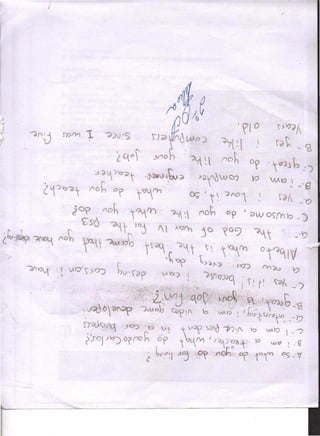 A- So what do you do for living?
B- i am a teacher, what do you do Carlos?
C- i am a vice president in a car business
a- interesting, i am a video game developer
B- great, is your job fun?
C- yes it is, because i can desing cars can i have
a new car every day.
Alberto what is the best game that you have desing
a- the God of war IV for the PS3
C awsome. do you like what you do?
a- yes i love it, so what do you teach?
B- i am a computer teacher
C- great. do you like your job?
B- yes i like computers since I was five
years old.